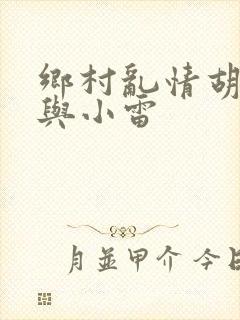 鄉村亂情胡
與小雷
月並甲介 今日